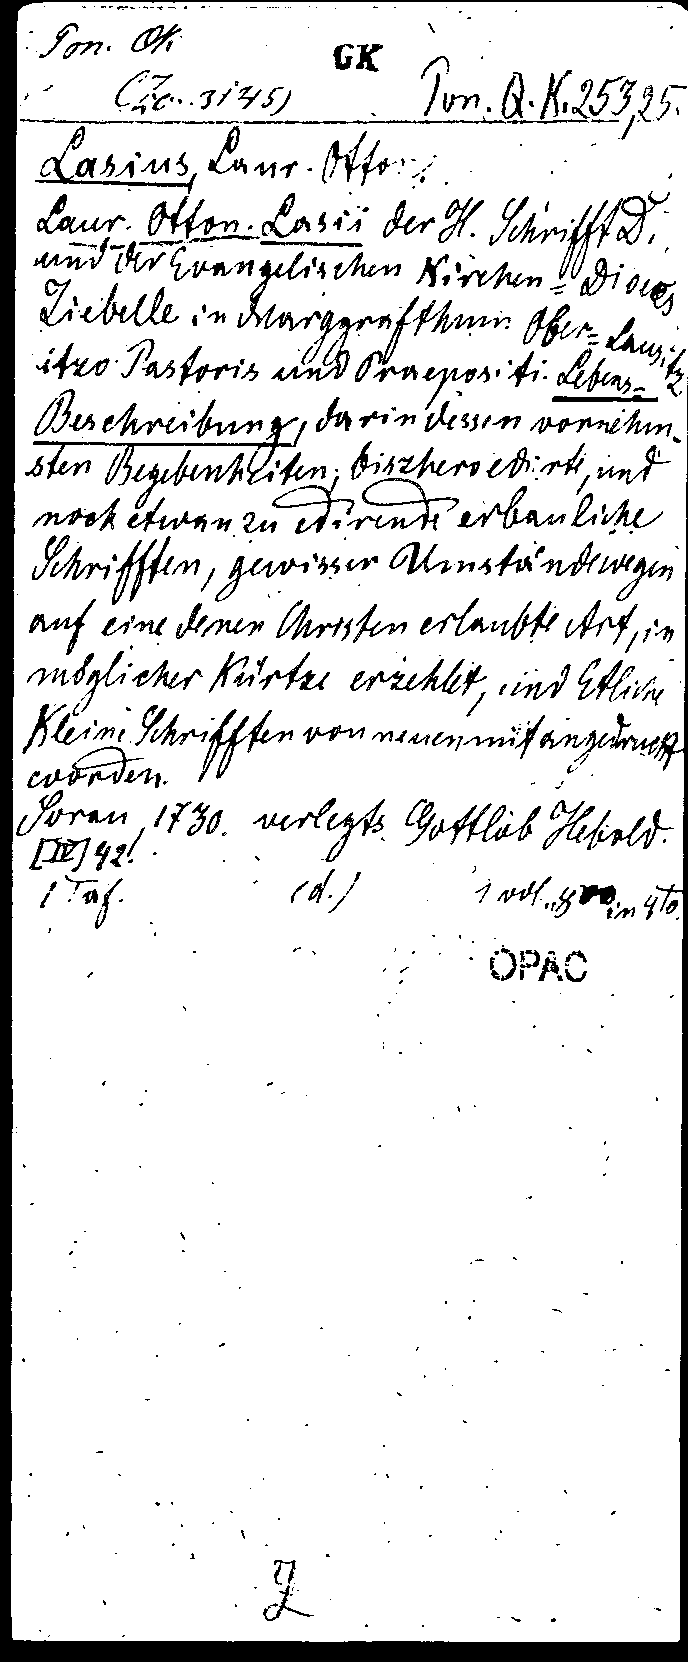 Pon. Qk.
GK
(Zc. 3145)
Pon. Q. K. 253,25.
Lasius, Laur. Otto.
Laur. Otton. Lasii der H. Schrifft D.
und der Evangelischen Kirchen= Dioces
Ziebelle in Marggrafthum Ober= Lausitz
itzo Pastoris und Praepositi Lebens=
Beschreibung, darin dessen vornehm-
sten Begebenheiten, biszhero edirte, und
noch etwan zu edirende erbauliche
Schrifften, gewisser Umstände wegen
auf eine denen Christen erlaubte Art, in
möglicher Kürtze erzehlet, und Etliche
Kleine Schrifften von neuen mit angedruckt
worden.
Soran, 1730. verlegts Gottlob Hebold.
[IV] 42.
1 Taf. (d.) 1 vol. 8vo in 4to.
OPAC